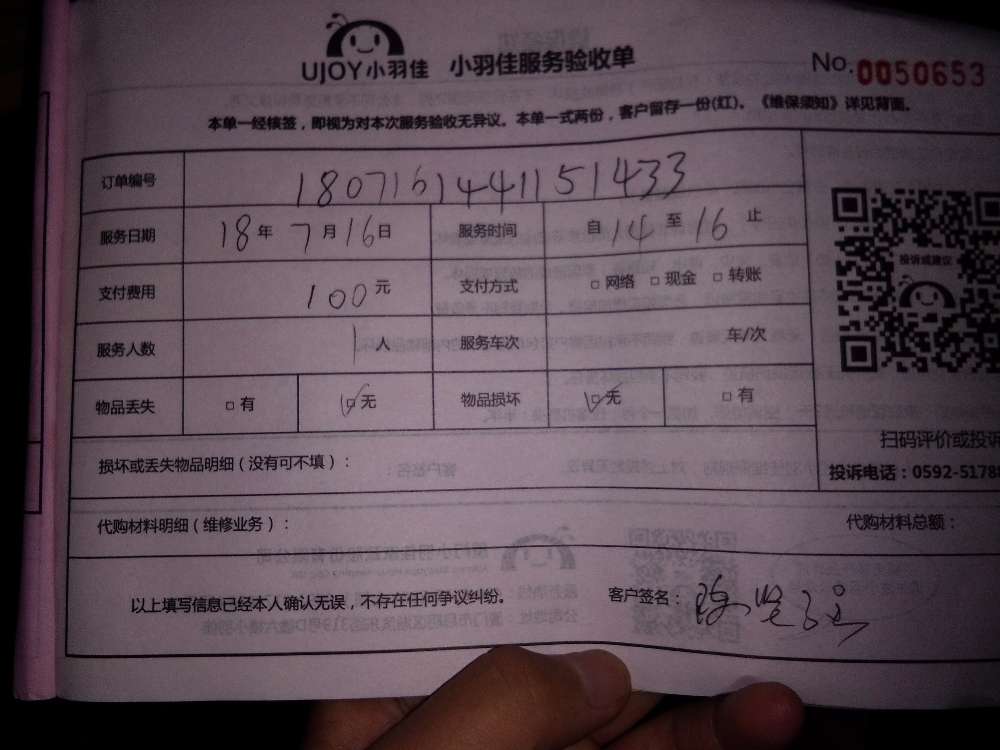 UJOY小羽佳 小羽佳服务验收单 No.0050653
本单一经核签，即视为对本次服务验收无异议。本单一式两份，客户留存一份(红)。《维保须知》详见背面。
订单编号 18071614441151433
服务日期 18年 7月16日 服务时间 自14至16止
支付费用 100元 支付方式 □网络 □现金 □转账
投诉或建议
服务人数 1人 服务车次 车/次
物品丢失 □有 ☑无 物品损坏 ☑无 □有
扫码评价或投诉
损坏或丢失物品明细（没有可不填）：
投诉电话：0592-5178
代购材料明细（维修业务）： 代购材料总额：
以上填写信息已经本人确认无误，不存在任何争议纠纷。 客户签名：